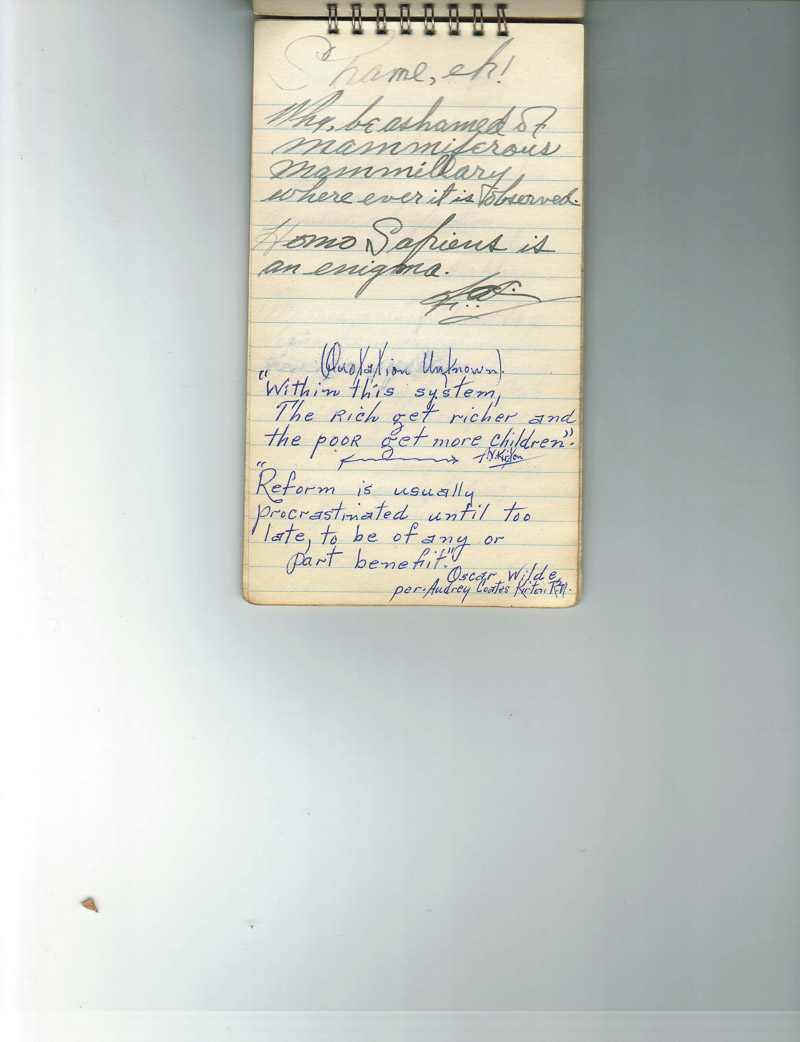 Shame, eh!
Why, be ashamed of
mammiferous
mammillary
where ever it is observed.
Homo Sapiens is
an enigma.
(Quotation Unknown).
"Within this system,
The Rich get richer and
the pooR get more children".
N. Kirton
"Reform is usually
procrastinated until too
late, to be of any or
part benefit."
Oscar Wilde,
per. Audrey Coates Kirton R.N.